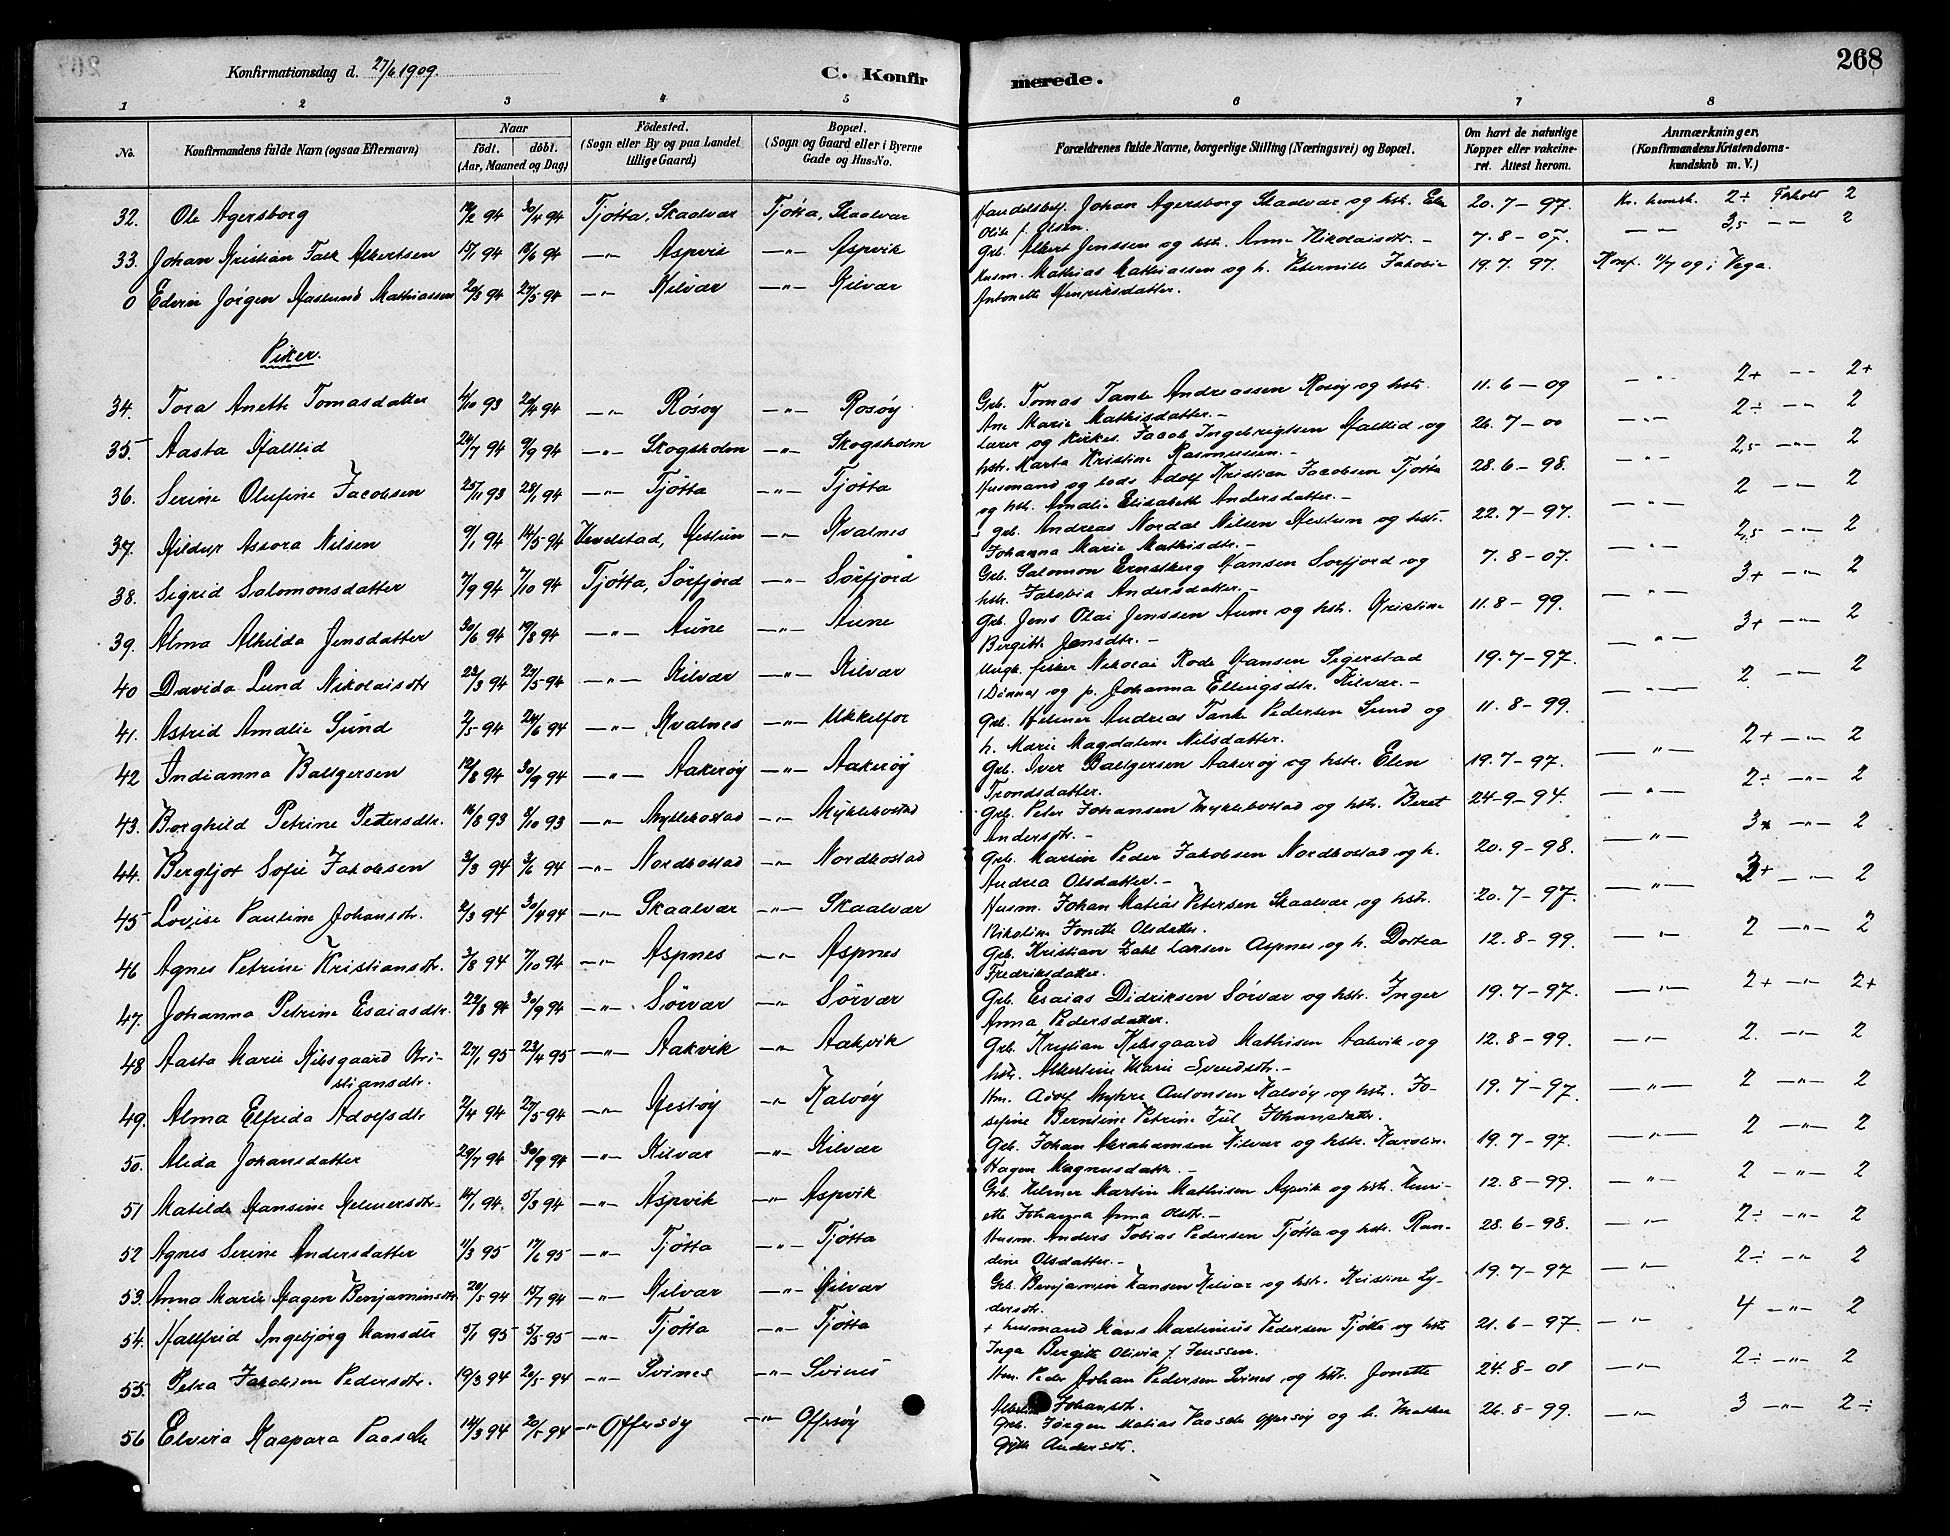 Konfirmationsdag d. 27/6 1909.
C. Konfirmerede.
268
1 2 3 4 5 6 7 8
No.
Konfirmandens fulde Navn (ogsaa Efternavn)
Naar
födt. döbt.
(Aar, Maaned og Dag)
Födested.
(Sogn eller By og paa Landet tillige Gaard)
Bopæl.
(Sogn og Gaard eller i Byerne Gade og Hus-No.
Forældrenes fulde Navne, borgerlige Stilling (Næringsvei) og Bopæl.
Om havt de naturlige Kopper eller vaccineret. Attest herom.
Anmærkninger.
(Konfirmandens Kristendomskundskab m. V.)
32. Ole Agersborg 94 30/4 94 Tjøtta, Skaalvær Tjøtta, Skaalvær Johan Agersborg Skaalvær og hstr. 20.7-97. Kr. kunsk. 2÷ Forhold 2
Olsen.
33. Johan Kristian Falk Albertsen 17/1 94 18/6 94 —"— Aspvik —"— Aspvik Grb. Albert Jenssen og hstr. Anne Nikolaisdtr. — 7.8-07. —"— 3,5 —"— 2
0 Edvin Jørgen Aaslund Mathiassen 94 27/5 94 —"— Kilvær —"— Kilvær Husm. Mathias Mathiassen og h. Peternille Jakobie 19.7.97. Konf. 11/7 09 i Vega.
Antonette Henriksdatter.
Piker.
34. Tora Anette Tomasdatter 4/10 93 94 —"— Rosøy —"— Rosøy Grb. Tomas Tanke Andreassen Rosøy og hstr. 11.6-09 —"— 2+ —"— 2+
Ane Marie Mathisdatter.—
35. Aasta Haltlid 24/7 94 9/9 94 —"— Skogsholm —"— Skogsholm Lærer og kirkes. Jacob Ingebrigtsen Haltlid og 26.7-00 —"— 2÷ —"— 2
hstr. Marta Kristine Rasmussen.—
36. Serine Olufine Jacobsen 25/11 93 28/1 94 —"— Tjøtta —"— Tjøtta Husmand og lods Adolf Kristian Jacobsen Tjøtta 28.6-98. —"— 2,5 —"— 2
og hstr. Amalie Elisabeth Andersdatter.—
37. Hildur Assora Nilsen 9/1 94 14/5 94 Vevelstad, Hestun —"— Kvalnes grb. Andreas Nordal Nilsen Hestun og hstr. 22.7-97. —"— 2 —"— 2
Johanna Marie Mathisdtr.—
38. Sigrid Salomonsdatter 7/9 94 7/10 94 Tjøtta, Sørfjord —"— Sørfjord Grb. Salomon Ernstberg Hansen Sørfjord og 7.8-07. —"— 2,5 —"— 2
hstr. Jakobia Andersdatter.—
39. Alma Alhilda Jensdatter 30/6 94 19/8 94 —"— Aune —"— Aune Grb. Jens Olai Jenssen Aune og hstr. Kristine 11.8-99. —"— 3+ —"— 2
Bergitte Jensdtr.—
40 Davida Lund Nikolaisdtr 23/3 94 27/5 94 —"— Kilvær —"— Kilvær Ungk. fisker Nikolai Rode Hansen Sigerstad 19.7-97. —"— 3+ —"— 2
(Dønna) og p. Johanna Ellingsdtr. Kilvær.—
41. Astrid Amalie Sund 2/5 94 24/6 94 —"— Kvalnes —"— Ukkelfor Grb. Helmer Andreas Tanke Pedersen Sund og 11.8-99. —"— 2. —"— 2
h. Marie Magdalene Nilsdatter.
42 Indianna Ballgersen 12/8 94 30/9 94 —"— Aakerøy —"— Aakerøy Grb. Iver Ballgersen Aakerøy og hstr. Elen 19.7-97. —"— 2+ —"— 2
Trondsdatter.
43. Borghild Petrine Petersdtr. 16/8 93 8/10 93 —"— Myklebostad —"— Myklebostad Grb. Peter Johansen Myklebostad og hstr. Beret 24-9-94. —"— 2÷ —"— 2
Andersdtr.—
44. Bergljot Sofie Jakobsen 3/3 94 3/6 94 —"— Nordbostad —"— Nordbostad Grb. Martin Peder Jakobsen Nordbostad og h. 20.9-98. —"— 3 —"— 2
Andrea Olsdatter.—
45 Lovise Pauline Johansdtr. 2/3 94 30/4 94 —"— Skaalvær —"— Skaalvær Husm. Johan Matias Petersen Skaalvær og hstr. 20.7-97. —"— 3+ —"— 2
Nikoline Jonette Olsdatter.
46 Agnes Petrine Kristiansdtr. 3/8 94 7/10 94 —"— Aspnes —"— Aspnes Grb. Kristian Zahl Larsen Aspnes og h. Dortea 12.8-99. —"— 2 —"— 2
Fredriksdatter.
47. Johanna Petrine Esaiasdtr. 22/8 94 30/9 94 —"— Sørvær —"— Sørvær Grb. Esaias Didriksen Sørvær og hstr. Inger 19.7-97. —"— 2+ —"— 2+
Anna Pedersdatter.
48 Aasta Marie Kilsgaard Kristiansdtr. 27/1 95 23/4 95 —"— Aakvik —"— Aakvik Grb. Kristian Kilsgaard Mathisen Aakvik og 12.8-99. —"— 2. —"— 2
hstr. Albertine Marie Svendsdtr.—
49. Alma Elfrida Adolfsdtr 2/4 94 27/5 94 —"— Hestøy —"— Kalvøy Hm. Adolf Myhre Antonsen Kalvøy og hstr. Josefine 19.7-97. —"— 2 —"— 2
Berntine Petrine Jul Johansdatter.
50. Alida Johansdatter 29/7 94 30/9 94 —"— Kilvær —"— Kilvær Grb. Johan Abrahamsen Kilvær og hstr. Karolin 19.7-97. —"— 2 —"— 2
Hagen Magnusdatt. —
51 Matilde Hansine Helmersdtr. 14/1 94. 5/3 94 —"— Aspvik —"— Aspvik Grb. Helmer Martin Mathisen Aspvik og hstr. Henriette 12.8-99. —"— 2 —"— 2
Johanna Anna Olsdtr.—
52 Agnes Serine Andersdatter 11/3 95 95 —"— Tjøtta —"— Tjøtta Husm. Anders Tobias Pedersen Tjøtta og hstr. Randine 28.6-98. —"— 2÷ —"— 2
Olsdatter.—
53. Anna Marie Hagen Benjaminsdtr 20/5 94 15/7 94 —"— Kilvær —"— Kilvær Grb. Benjamin Hansen Kilvær og hstr. Kristine Lydersdtr. 19.7-97 —"— 2÷ —"— 2
54. Hallfrid Ingebjørg Hansdtr 5/1 95 5/5 95 —"— Tjøtta —"— Tjøtta + husmand Hans Martinius Pedersen Tjøtta og hstr 21.6-97. —"— 4 —"— 2
Inga Bergitte Olivia f. Jenssen.
55. Petra Jakobine Pedersdtr. 19/3 94 20/5 94 —"— Svines —"— Svines Hm. Peder Johan Pedersen Svines og hstr. Jonette 24.8-08 —"— 2÷ —"— 2
Johansdtr.
56 Elvira Kaspara Paasche 14/3 94 20/5 94 —"— Offersøy —"— Offersøy Grb. Jørgen Matias Paasche Offersøy og h. 26.8-99. —"— 3 —"— 2÷
Andersdtr.